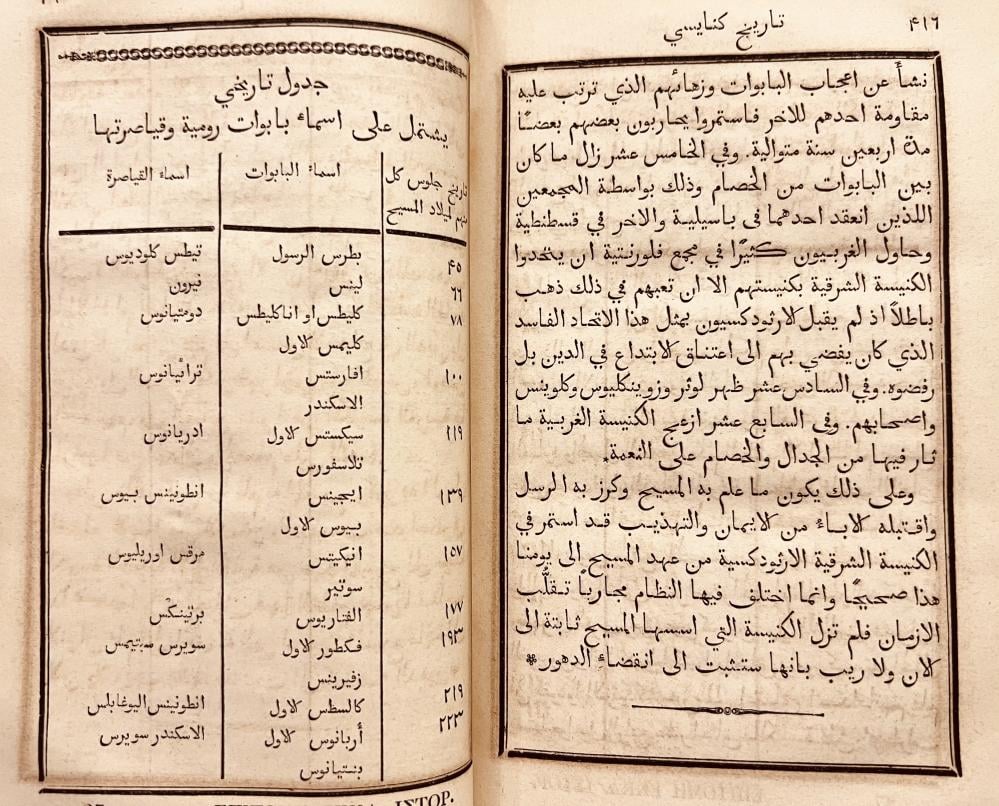 ٤١٦
تاريخ كنايسي
نشأ عن اعجاب البابوات وزهائهم الذي ترتب عليه
مقاومة احدهم للاخر فاستمروا يحاربون بعضهم بعضًا
مدة اربعين سنة متوالية. وفي الخامس عشر زل ما كان
بين البابوات من الخصام وذلك بواسطة المجمعين
اللذين انعقد احدهما فى باسيلية والاخر في قسطنطية
وحاول الغربيون كثيرًا في مجمع فلورنتية ان يتحدوا
الكنيسة الشرقية بكنيستهم الا ان تعبهم في ذلك ذهب
باطلاً اذ لم يقبل الارثودكسيون بمثل هذا الاتحاد الفاسد
الذي كان يفضي بهم الى اعتناق الابتداع في الدين بل
رفضوه. وفي السادس عشر ظهر لوثر وزوينكليوس وكلوينس
واصحابهم. وفى السابع عشر ازعج الكنيسة الغربية ما
ثار فيها من الجدال والخصام على النعمة.
وعلى ذلك يكون ما علم به المسيح وكرز به الرسل
واقتبله الاباء من الايمان والتهذيب قد استمر في
الكنيسة الشرقية الارثودكسية من عهد المسيح الى يومنا
هذا صحيحًا وانما اختلف فيها النظام مجاربًا تقلُّب
الازمان فلم تزل الكنيسة التي اسسها المسيح ثابتة الى
الان ولا ريب بانها ستثبت الى انقضاء الدهور*
جدول تاريخي
يشتمل على اسماء بابوات رومية وقياصرتها
تاريخ جلوس كل منهم لميلاد المسيح اسماء البابوات اسماء القياصرة
٤٥ بطرس الرسول قيطس كلوديوس
٦٦ لينس نيرون
٧٨ كليطس او اناكليطس دومتيانوس
كليمس الاول
١٠٠ افارستس ترائيانوس
الاسكندر
١١٩ سيكستس الاول ادريانوس
تلاسفورس
١٣٩ ايجينس انطونينس بيوس
بيوس الاول
١٥٧ انيكيتس مرقس اوريليوس
سوتير
١٧٧ الفتاريوس برتينكس
١٩٣ فكطور الاول سويرس سبتيمس
زفيرينس
٢١٩ كالسطس الاول انطونينس اليوغابلس
٢٢٣ أربانوس الاول الاسكندر سويرس
بنتيانوس
ΙΣΤΟΡ.